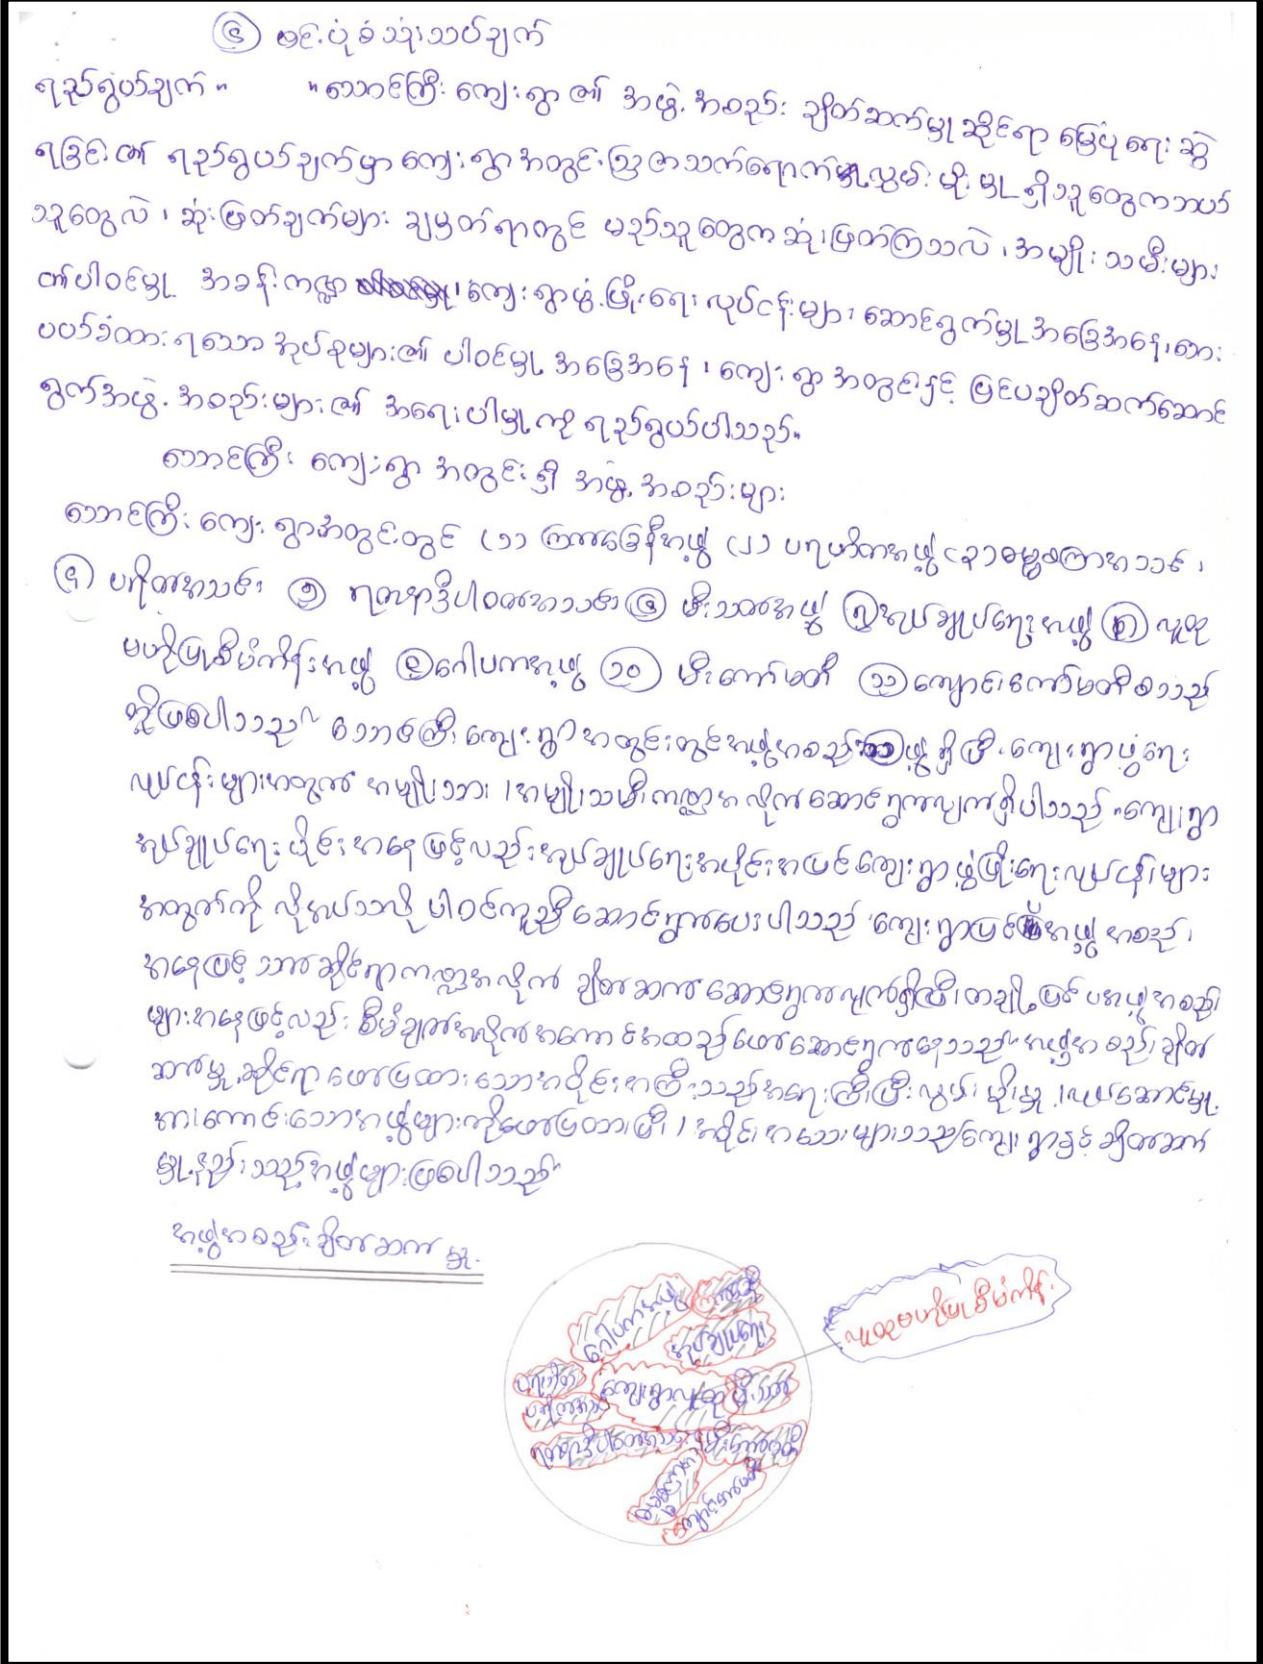 ၆ စင်းပုံခံသုံးသပ်ချက်
ရည်ရွယ်ချက်။ ။ဘောင်ကြီးကျေးရွာ၏ အဖွဲ့အစည်း ချိတ်ဆက်မှုဆိုင်ရာ မြေပုံရေးဆွဲ
ရခြင်း၏ ရည်ရွယ်ချက်မှာ ကျေးရွာအတွင်းသြဇာသက်ရောက်မှု လွှမ်းမိုးမှု ရှိသူတွေကဘယ်
သူတွေလဲ၊ ဆုံးဖြတ်ချက်များ ချမှတ်ရာတွင် မည်သူတွေက ဆုံးဖြတ်ကြသလဲ၊ အမျိုးသမီးများ
၏ပါဝင်မှု အခန်းကဏ္ဍ ၊ ကျေးရွာဖွံ့ဖြိုးရေး လုပ်ငန်းများ ဆောင်ရွက်မှု အခြေအနေ၊ ဘေး
ပယ်ခံထားရသော အုပ်စုများ၏ ပါဝင်မှု အခြေအနေ ၊ ကျေးရွာ အတွင်းနှင့် ပြင်ပချိတ်ဆက်ဆောင်
ရွက်အဖွဲ့အစည်းများ၏ အရေးပါမှုကို ရည်ရွယ်ပါသည်။
ဘောင်ကြီး ကျေးရွာ အတွင်းရှိ အဖွဲ့အစည်းများ
ဘောင်ကြီးကျေးရွာအတွင်းတွင် (၁) ကြက်ခြေနီအဖွဲ့ (၂) ပရဟိတအဖွဲ့ (၃) ဓမ္မစကြာအသင်း၊
၄ ပရိတ်အသင်း ၅ ရတနာဒီပါဝတ်အသင်း ၆ မီးသတ်အဖွဲ့ ၇ အုပ်ချုပ်ရေးအဖွဲ့ ၈ လူထု
ဗဟိုပြုစီမံကိန်းအဖွဲ့ ၉ ဂေါပကအဖွဲ့ ၁၀ မီးကော်မတီ ၁၁ ကျောင်းကော်မတီ စသည်
တို့ဖြစ်ပါသည်။ ဘောင်ကြီးကျေးရွာအတွင်းတွင် အဖွဲ့အစည်း ဖွဲ့ရှိပြီး ကျေးရွာဖွံ့ရေး
လုပ်ငန်းများအတွက် အမျိုးသား ၊ အမျိုးသမီး ကဏ္ဍအလိုက် ဆောင်ရွက်လျက်ရှိပါသည်။ ကျေးရွာ
အုပ်ချုပ်ရေးပိုင်းအနေဖြင့်လည်း အုပ်ချုပ်ရေးအပိုင်းအပြင် ကျေးရွာဖွံ့ဖြိုးရေးလုပ်ငန်းများ
အတွက်ကို လိုအပ်သလို ပါဝင်ကူညီဆောင်ရွက်ပေးပါသည် ကျေးရွာပြင်ပအဖွဲ့အစည်း
အနေဖြင့် သက်ဆိုင်ရာကဏ္ဍအလိုက် ချိတ်ဆက်ဆောင်ရွက်လျက်ရှိပြီး တချို့ ပြင်ပအဖွဲ့အစည်း
များအနေဖြင့်လည်း စီမံချက်အလိုက် အကောင်အထည်ဖော်ဆောင်ရွက်နေသည်။ အဖွဲ့အစည်း ချိတ်
ဆက်မှုဆိုင်ရာ ဖော်ပြထားသော အဝိုင်းအကြီးသည် အရေးကြီးပြီး လွှမ်းမိုးမှု၊ လုပ်ဆောင်မှု
အားကောင်းသောအဖွဲ့များကို ဖော်ပြထားပြီး၊ အဝိုင်းအသေးများသည် ကျေးရွာနှင့် ချိတ်ဆက်
မှုနည်းသည့် အဖွဲ့များဖြစ်ပါသည်။
အဖွဲ့အစည်းချိတ်ဆက်မှု
ဂေါပကအဖွဲ့ ကြက်ခြေနီ
အုပ်ချုပ်ရေး
လူထုဗဟိုပြုစီမံကိန်း
ပရဟိတ ကျေးရွာလူထု မီးသတ်
ပရိတ်အသင်း
ရတနာဒီပါဝတ်အသင်း မီးကော်မတီ
ဓမ္မစကြာ ကျောင်းကော်မတီ